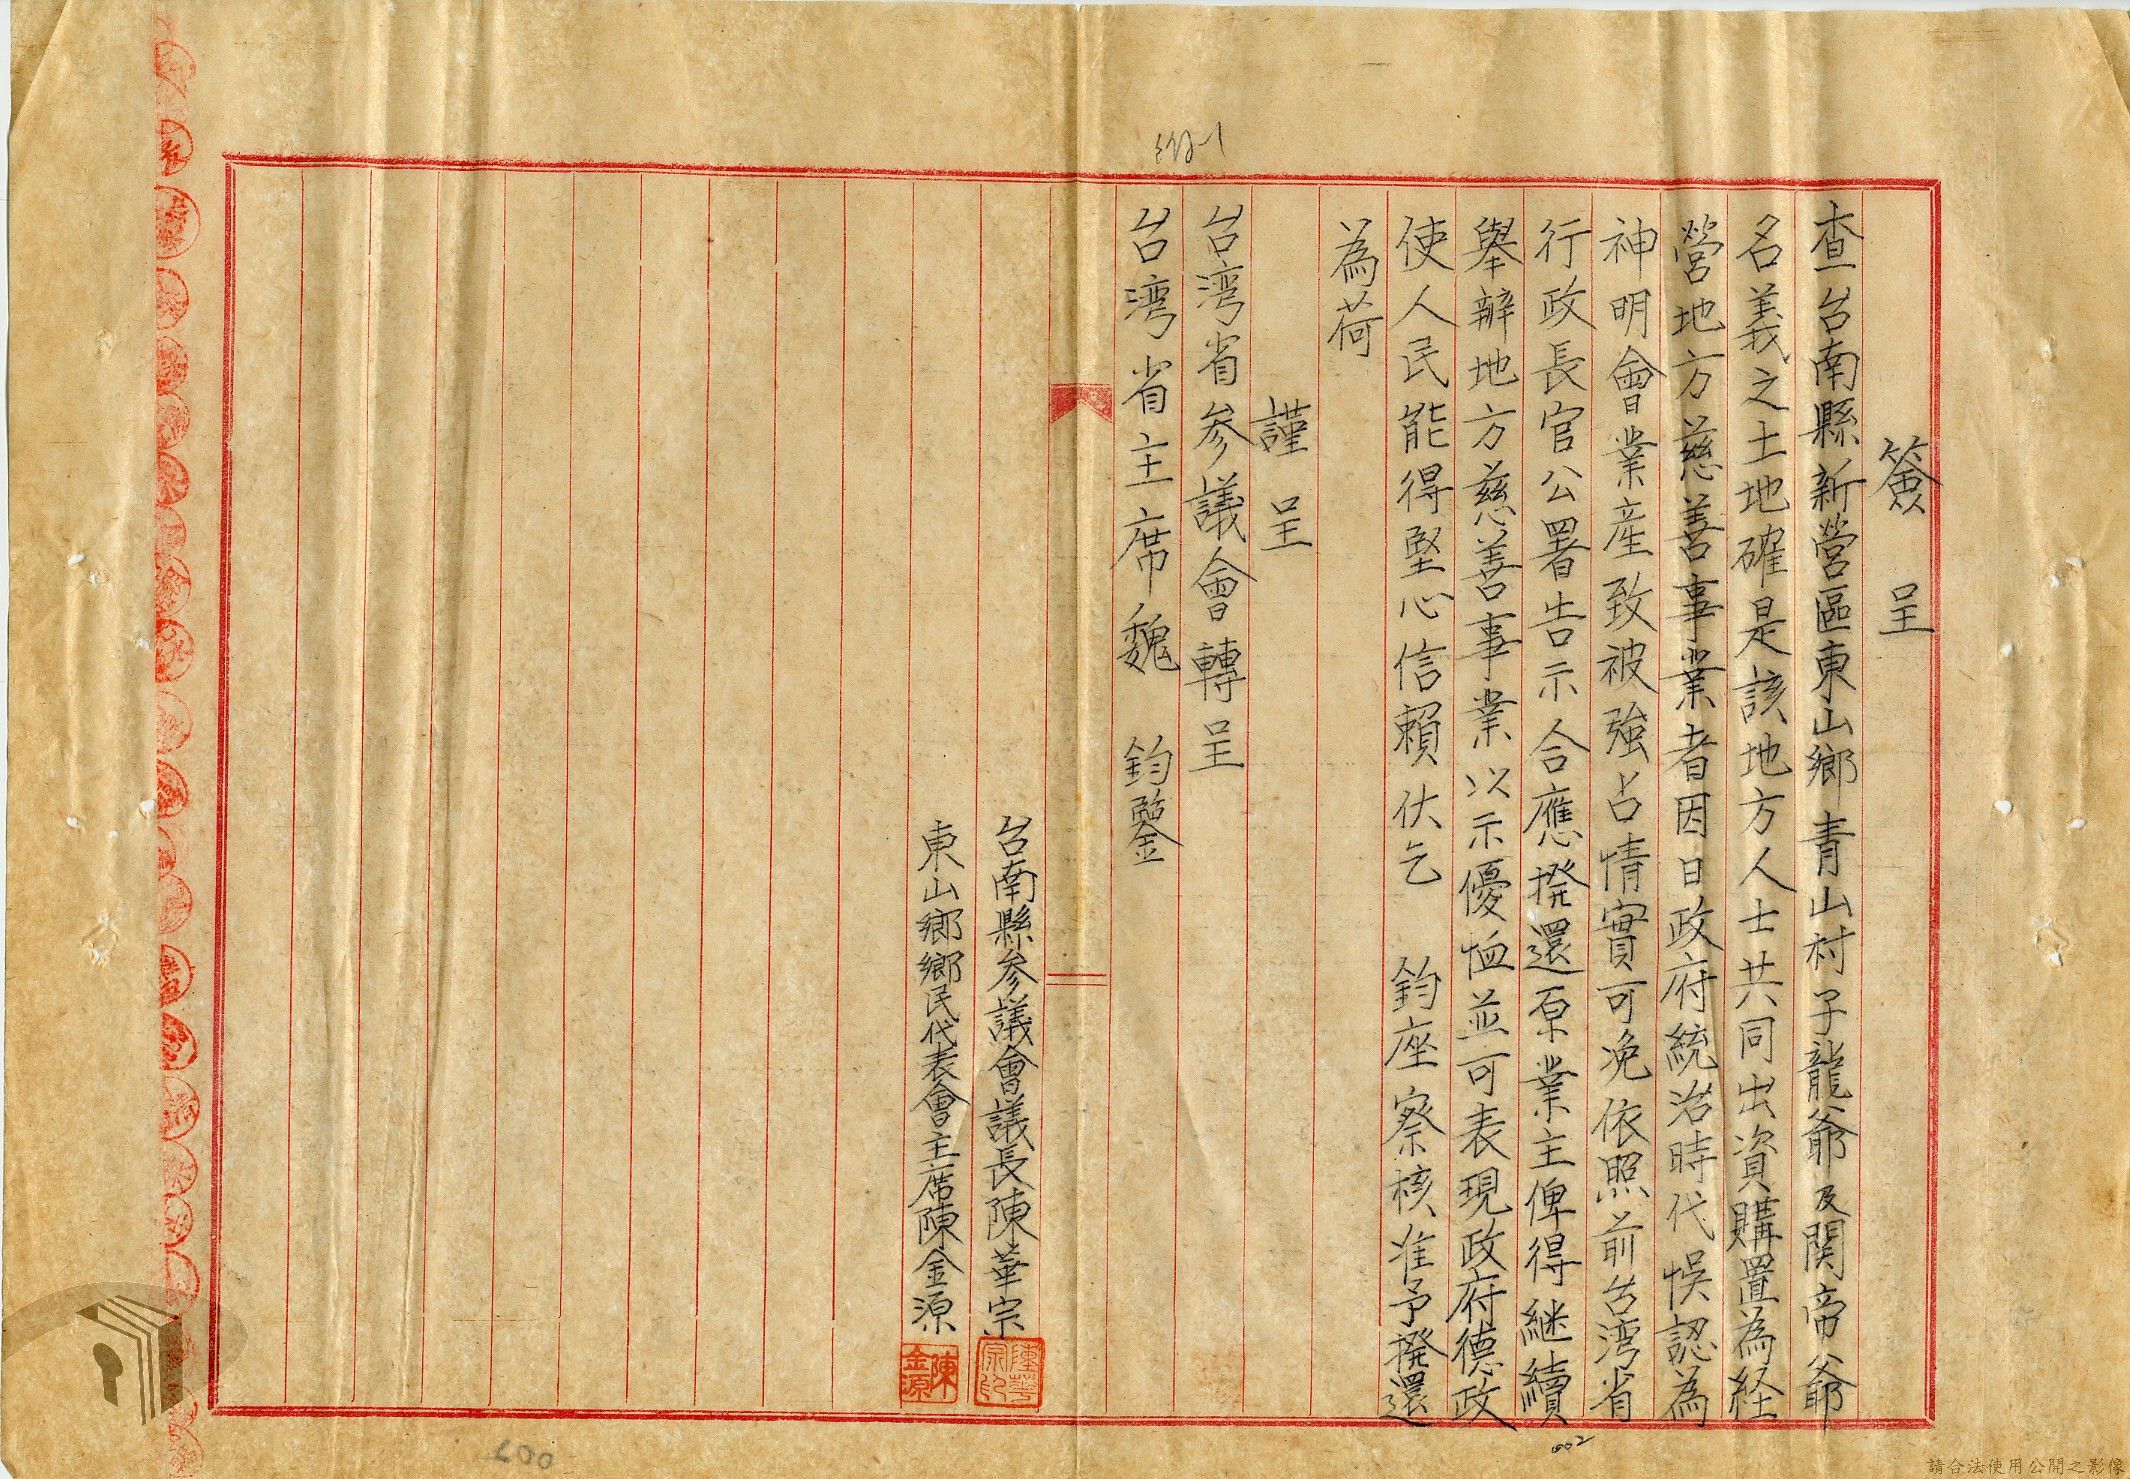 簽呈
查台南縣新營區東山鄉青山村子龍爺及関帝爺
名義之土地確是該地方人士共同出資購置為経
營地方慈善事業者因日政府統治時代悞認為
神明會業産致被強占情實可免依照前台湾省
行政長官公署告示合應撥還原業主俾得継續
舉辦地方慈善事業以示優恤並可表現政府德政
使人民能得堅心信賴伏乞　鈞座察核准予撥還
為荷
謹呈
台湾省参議會轉呈
台湾省主席魏　鈞鑒
台南縣参議會議長陳華宗
陳華宗印
東山鄉鄉民代表會主席陳金源
陳金源
002
007
請合法使用公開之影像